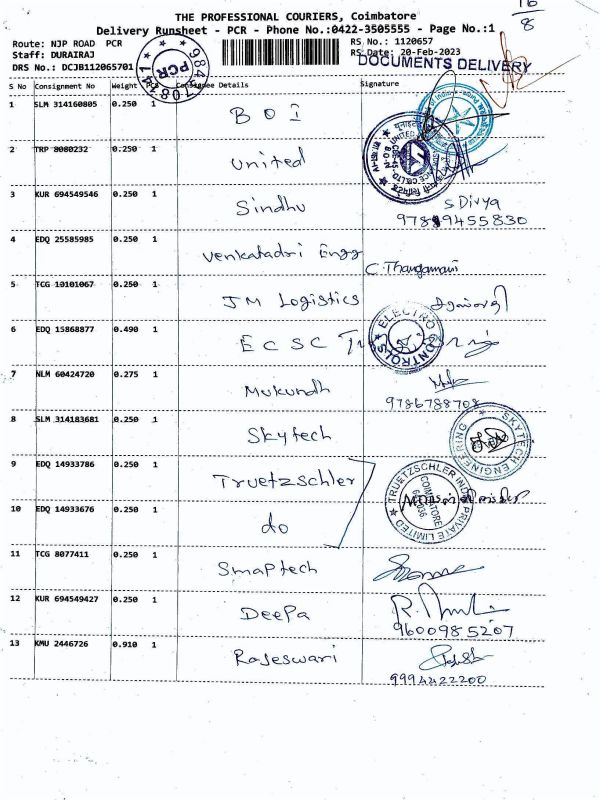 16
8
THE PROFESSIONAL COURIERS, Coimbatore
Delivery Runsheet - PCR - Phone No.:0422-3505555 - Page No.:1
Route: NJP ROAD PCR
RS No.: 1120657
Staff: DURAIRAJ
RS Date: 20-Feb-2023
DRS No.: DCJB112065701
DOCUMENTS DELIVERY
PCR
S No Consignment No Weight PCS Consignee Details Signature
1 SLM 314160805 0.250 1 BOI
2 TRP 8080232 0.250 1 United
3 KUR 694549546 0.250 1 Sindhu S Divya
97889455830
4 EDQ 25585985 0.250 1 Venkatadri Engg C. Thangamani
5 TCG 10101067 0.250 1 JM Logistics
6 EDQ 15868877 0.490 1 ECSC
ELECTRO CONTROLS
7 NLM 60424720 0.275 1 Mukundh
9786788708
8 SLM 314183681 0.250 1 Skytech
SKYTECH ENGINEERING
9 EDQ 14933786 0.250 1 Truetzschler
TRUETZSCHLER INDIA PRIVATE LIMITED
COIMBATORE
10 EDQ 14933676 0.250 1 do
11 TCG 8077411 0.250 1 Smaptech
12 KUR 694549427 0.250 1 Deepa
9600985207
13 KMU 2446726 0.910 1 Rajeswari
9994422200